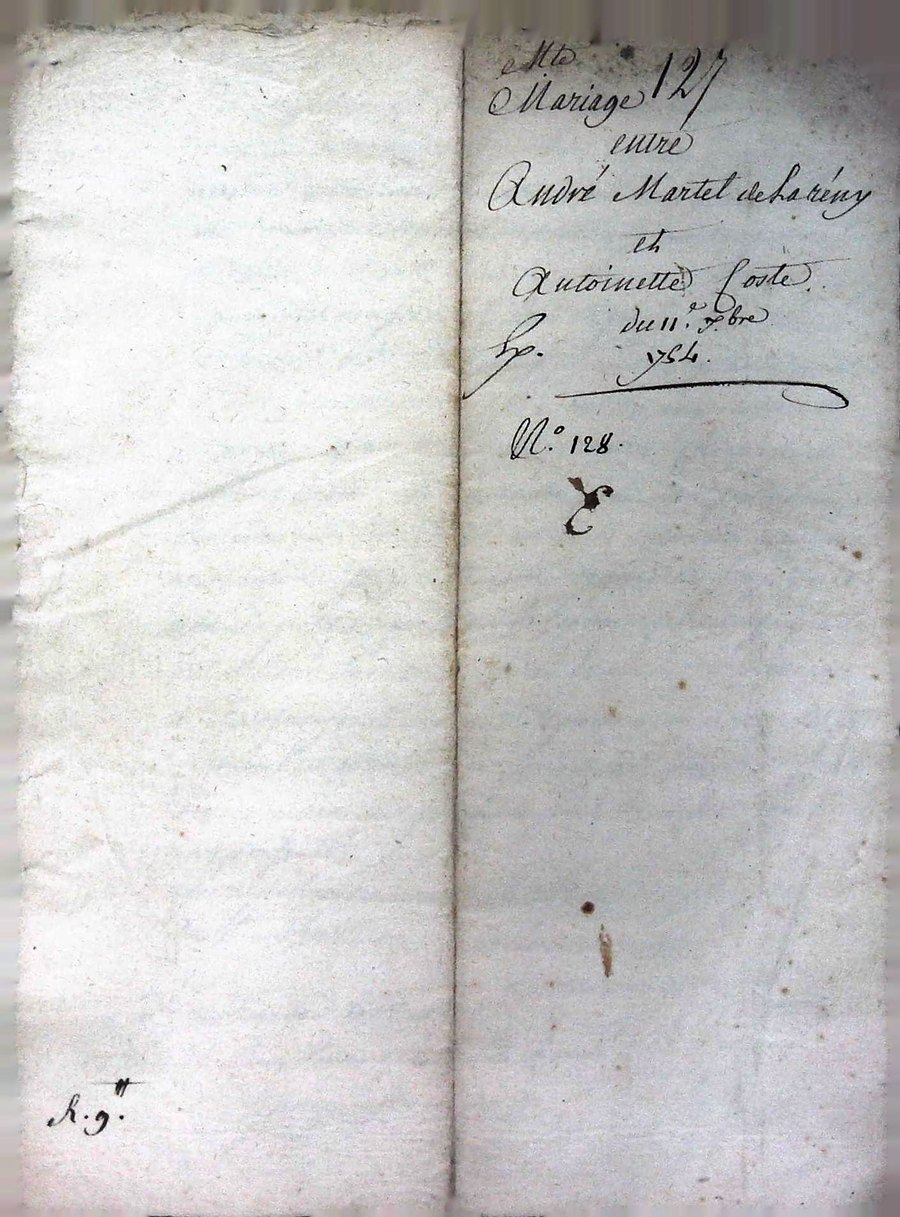 Mariage 127
entre
André Martel de Larény
et
Antoinette Coste.
du 11.e 7.bre
1754.
N.o 128.
R. 9.tt